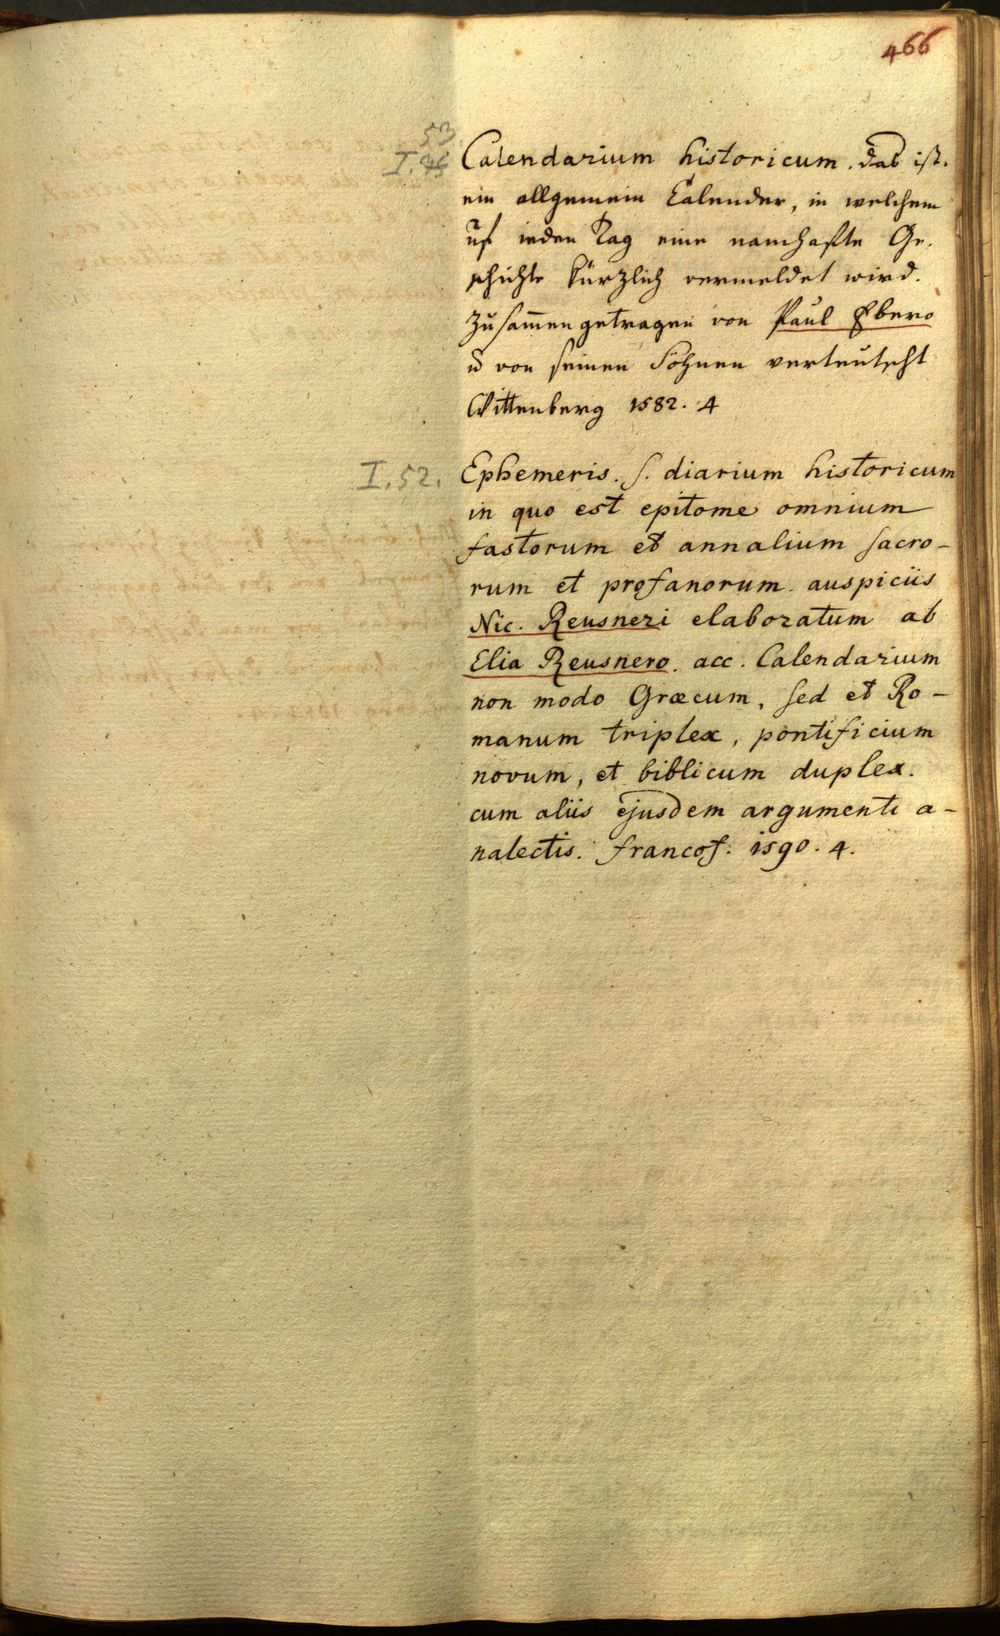 466
53
I. 46 Calendarium historicum. das ist.
ein allgemein Calender, in welchem
uf ieden Tag eine namhafte Ge-
schichte kürzlich vermeldet wird.
Zusam̅en getragen von Paul Ebero
u von seinen Söhnen verteutscht
Wittenberg 1582. 4
I. 52. Ephemeris. s. diarium historicum
in quo est epitome omnium
fastorum et annalium sacro-
rum et profanorum. auspiciis
Nic. Reusneri elaboratum ab
Elia Reusnero. acc. Calendarium
non modo Græcum, sed et Ro-
manum triplex, pontificium
novum, et biblicum duplex.
cum aliis ejusdem argumenti a-
nalectis. francof. 1590. 4.